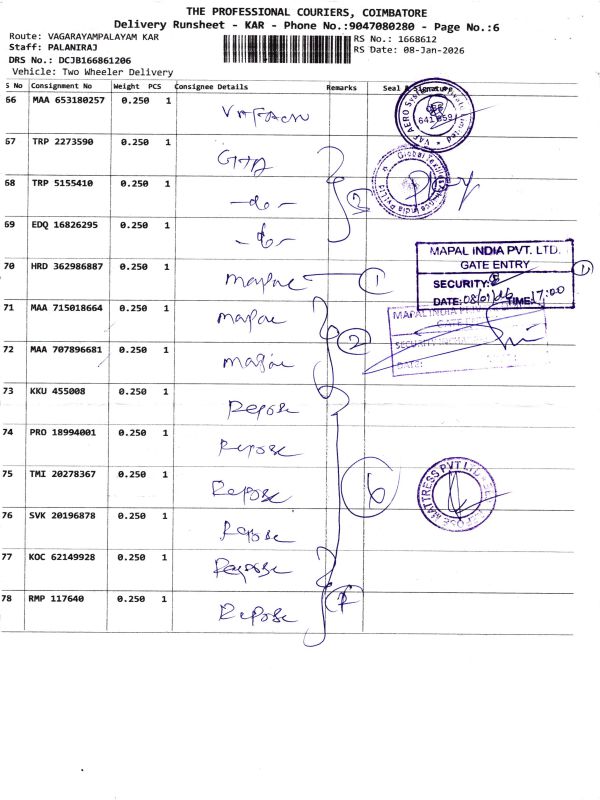 THE PROFESSIONAL COURIERS, COIMBATORE
Delivery Runsheet - KAR - Phone No.:9047080280 - Page No.:6
Route: VAGARAYAMPALAYAM KAR
Staff: PALANIRAJ
DRS No.: DCJB166861206
Vehicle: Two Wheeler Delivery
RS No.: 1668612
RS Date: 08-Jan-2026
S No Consignment No Weight PCS Consignee Details Remarks Seal & Signature
66 MAA 653180257 0.250 1
641 659
67 TRP 2273590 0.250 1
68 TRP 5155410 0.250 1 -do- 2
69 EDQ 16826295 0.250 1 -do-
70 HRD 362986887 0.250 1 Mapal 1
MAPAL INDIA PVT. LTD.
GATE ENTRY
SECURITY:
DATE: 08/01/26 TIME: 17:00
1
71 MAA 715018664 0.250 1 Mapal
MAPAL INDIA PVT
GATE
72 MAA 707896681 0.250 1 Mapal 2
DATE:
73 KKU 455008 0.250 1 Repose
74 PRO 18994001 0.250 1 Repose
75 TMI 20278367 0.250 1 Repose 6
REPOSE MATTRESS PVT LTD
76 SVK 20196878 0.250 1 Repose
77 KOC 62149928 0.250 1 Repose
78 RMP 117640 0.250 1 Repose